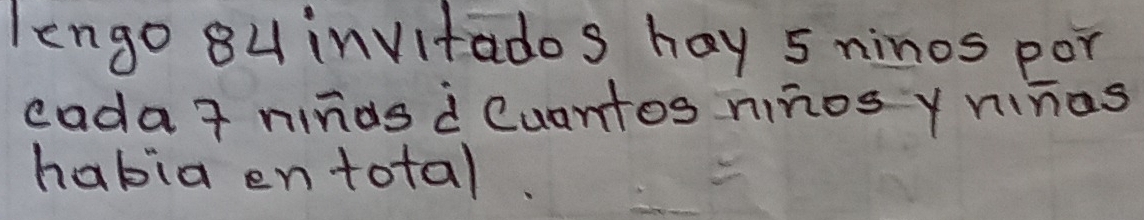 Tengo 84 invitados hay 5 ninos por
cada 7 niñas ¿ Cuantos niños y niñas
habia en total.